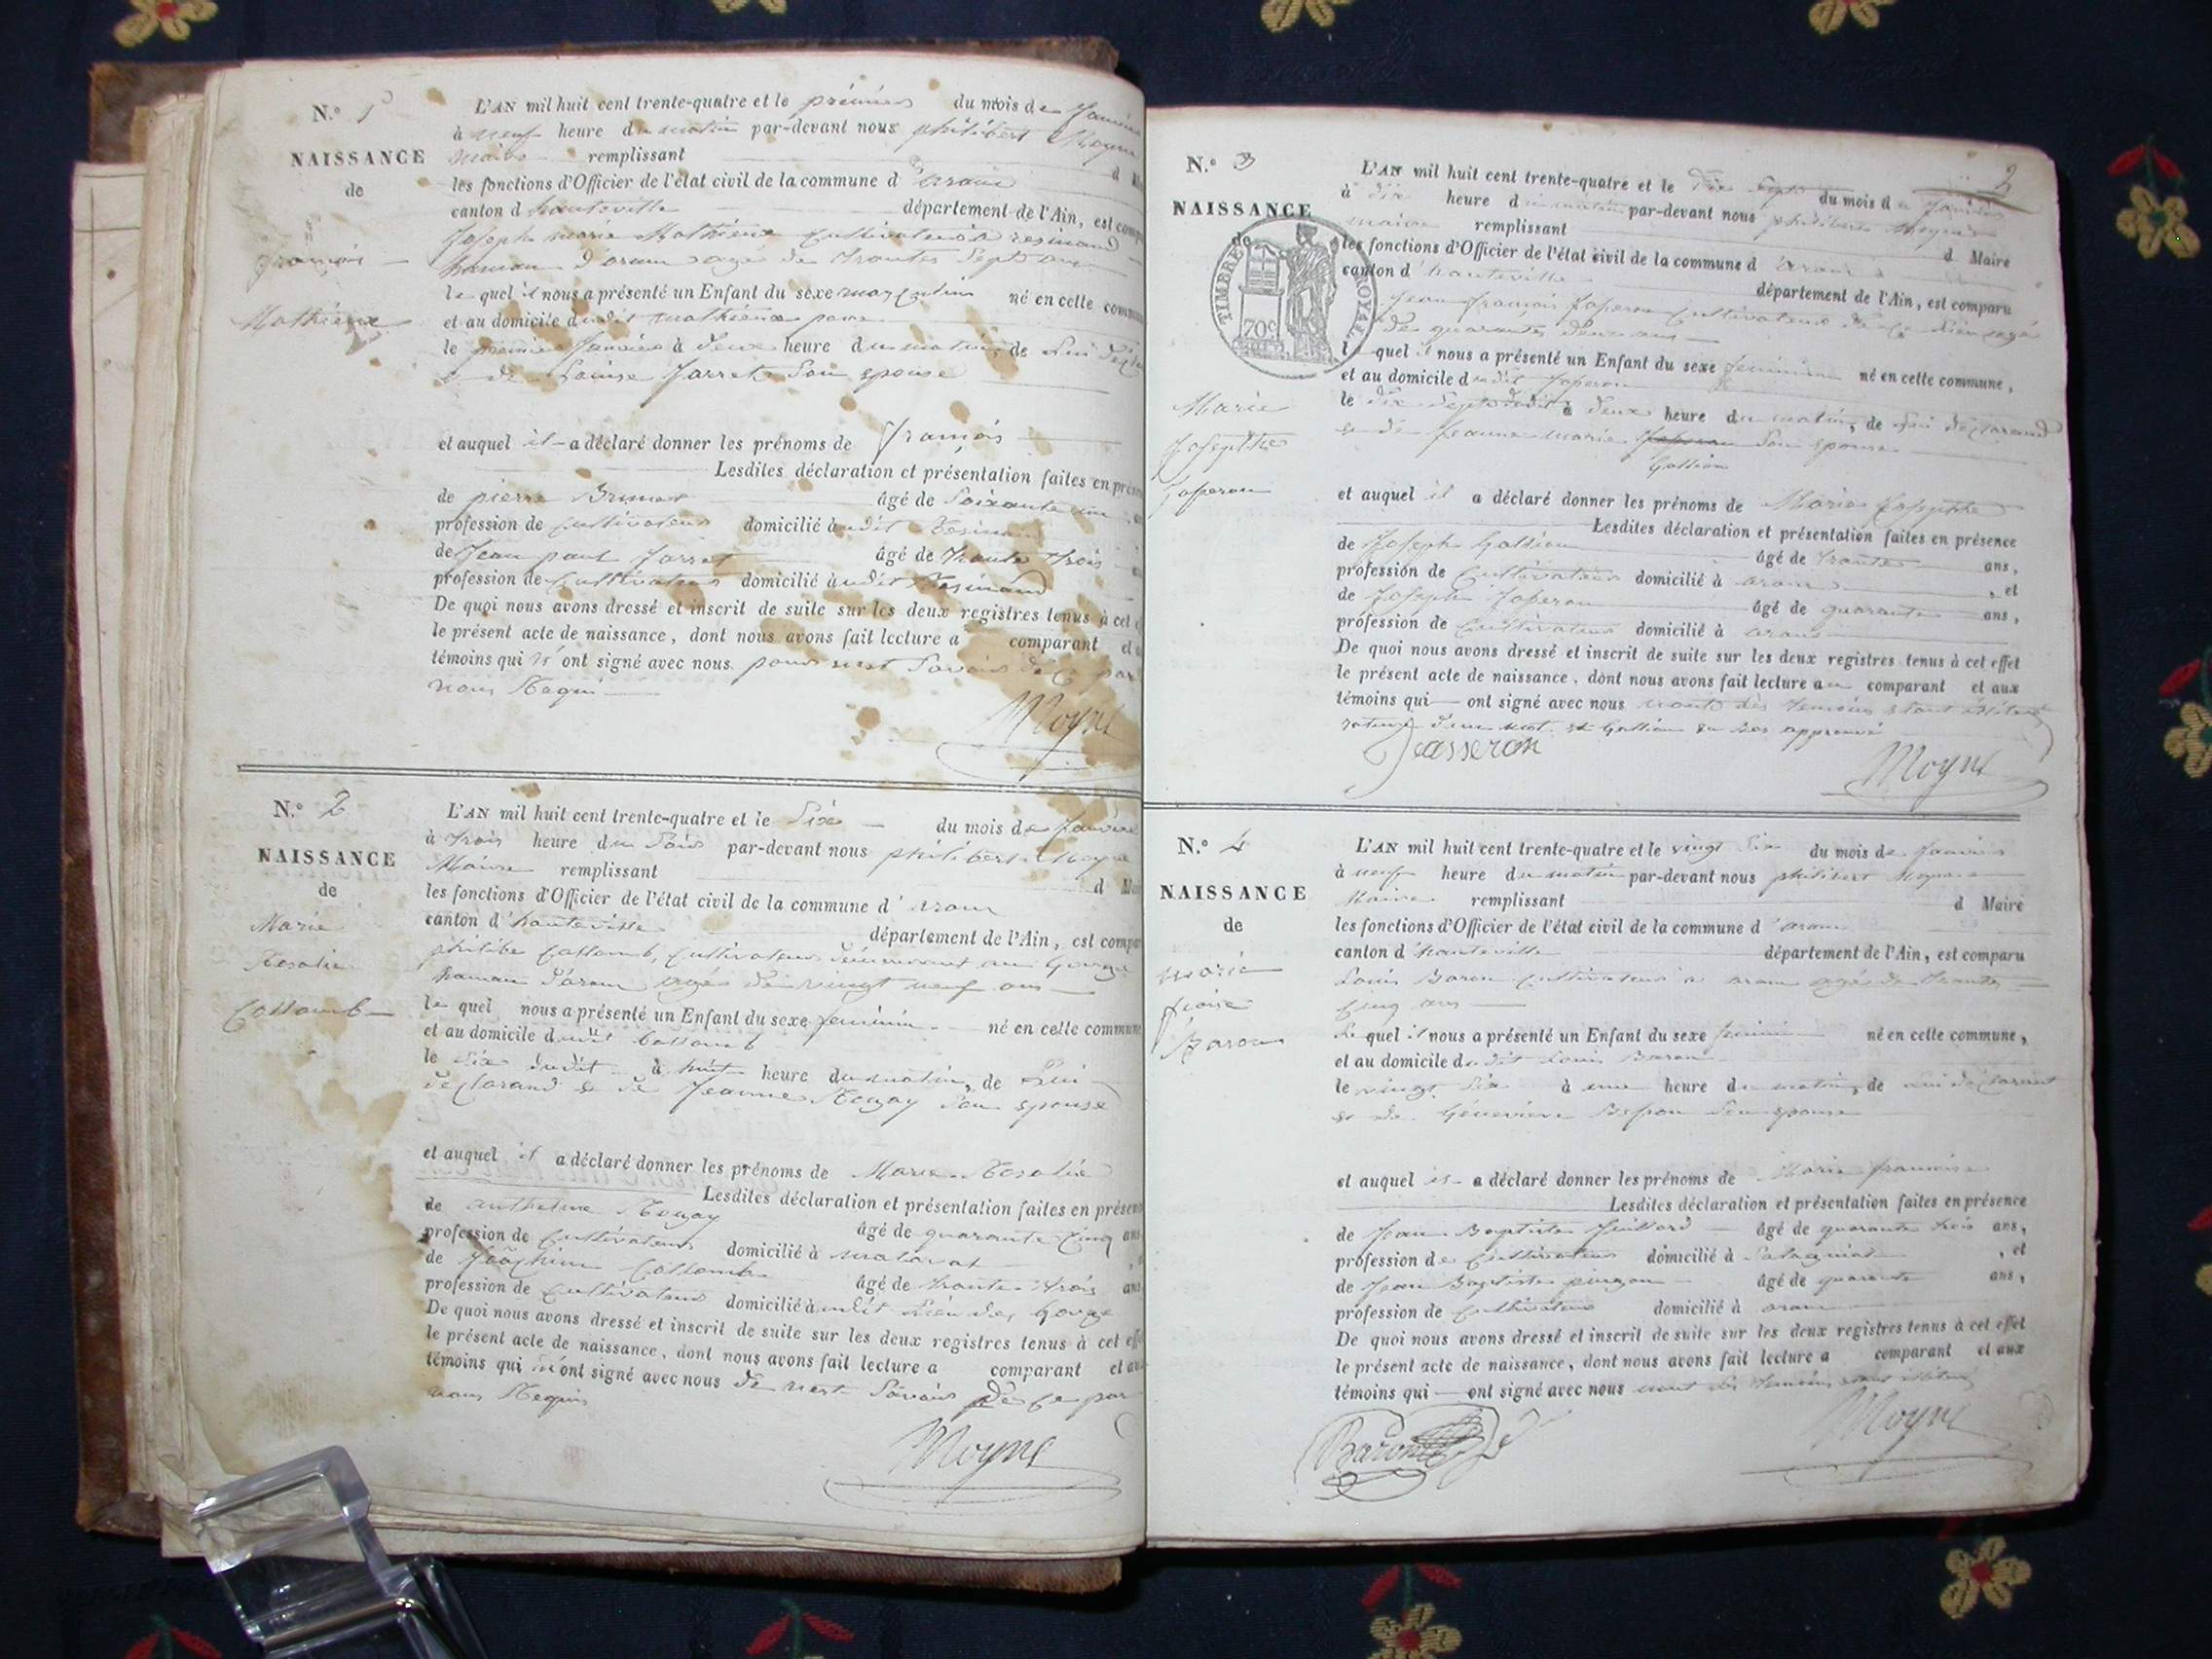 N.º 1
NAISSANCE
de
françois
Mathieux
L'AN mil huit cent trente-quatre et le premier du mois de Janvier
à neuf heure du matin par-devant nous philibert Moyne
Maire remplissant d
les fonctions d'Officier de l'état civil de la commune d'aranc
canton d'hauteville département de l'Ain, est comp
Joseph marie Mathieux Cultivateur à resinand
hameau d'aranc agé de trente Sept ans
le quel il nous a présenté un Enfant du sexe masculin né en cette commune
et au domicile dudit mathieux pere
le premier Janvier à deux heure du matin, de lui décla
& de Louise Jarret Son epouse
et auquel il a déclaré donner les prénoms de françois
Lesdites déclaration et présentation faites en présen
de pierre Brunet âgé de Soixante un
profession de Cultivateur domicilié audit Resinand
de Jean paul Jarret âgé de trente trois
profession de Cultivateur domicilié audit Resinand
De quoi nous avons dressé et inscrit de suite sur les deux registres tenus à cet e
le présent acte de naissance, dont nous avons fait lecture a comparant et a
témoins qui n'ont signé avec nous pour ne Savoir de ce par
nous Requi
Moyne
N.º 2
NAISSANCE
de
Marie
Rosalie
Collomb
L'AN mil huit cent trente-quatre et le Six du mois de Janvier
à trois heure du Soir par-devant nous philibert Moyne
Maire remplissant d
les fonctions d'Officier de l'état civil de la commune d'aranc
canton d'hauteville département de l'Ain, est compa
philibe Collomb, Cultivateur demeurant au Gorge
hameau d'aranc agé de vingt neuf ans
le quel nous a présenté un Enfant du sexe feminin né en cette commune
et au domicile dudit Collomb
le Six dudit à huit heure du matin, de Lui
declarand & de Jeanne Rougy Son epouse
et auquel il a déclaré donner les prénoms de Marie Rosalie
Lesdites déclaration et présentation faites en présen
de anthelme âgé de quarante Cinq ans
profession de Cultivateur domicilié à malaval
de Joachim Collomb âgé de trente trois ans
profession de Cultivateur domicilié audit Lieu des Gorge
De quoi nous avons dressé et inscrit de suite sur les deux registres tenus à cet eff
le présent acte de naissance, dont nous avons fait lecture a comparant et au
témoins qui n'ont signé avec nous de Savoir de Ce par
nous Requis
Moyne
2
N.º 3
NAISSANCE
de
TIMBRE ROYAL
70 c
Marie
Josephte
Jasseron
L'AN mil huit cent trente-quatre et le dix Sept du mois de Janvier
à dix heure du matin par-devant nous philibert Moyne
maire remplissant d Maire
les fonctions d'Officier de l'état civil de la commune d'aranc
canton d'hauteville département de l'Ain, est comparu
Jean françois Jasseron Cultivateur de Ce Lieu agé
de quarante deux ans
le quel il nous a présenté un Enfant du sexe feminin né en cette commune,
et au domicile dudit Jasseron
le dix Sept dudit à deux heure du matin, de Lui declarand
& de Jeanne marie Jasseron Son epouse
Gallion
et auquel il a déclaré donner les prénoms de Marie Josephte
Lesdites déclaration et présentation faites en présence
de Joseph Gallion âgé de trente ans,
profession de Cultivateur domicilié à aranc, et
de Joseph Jasseron âgé de quarante ans,
profession de Cultivateur domicilié à aranc
De quoi nous avons dressé et inscrit de suite sur les deux registres tenus à cet effet
le présent acte de naissance, dont nous avons fait lecture au comparant et aux
témoins qui ont signé avec nous les temoins etant
rature d'un mot & Gallion approuvé
Jasseron
Moyne
N.º 4
NAISSANCE
de
marie
Baron
L'AN mil huit cent trente-quatre et le vingt Six du mois de Janvier
à neuf heure du matin par-devant nous philibert Moyne
Maire remplissant d Maire
les fonctions d'Officier de l'état civil de la commune d'aranc
canton d'hauteville département de l'Ain, est comparu
Louis Baron Cultivateur à aranc agé de trente
Cinq ans
Le quel il nous a présenté un Enfant du sexe feminin né en cette commune,
et au domicile dudit Louis Baron
le vingt Six à une heure du matin, de Lui déclarent
& de Génevieve Son epouse
et auquel il a déclaré donner les prénoms de Marie francoise
Lesdites déclaration et présentation faites en présence
de Jean Baptiste Juillard âgé de quarante trois ans,
profession de Cultivateur domicilié à , et
de Jean Baptiste pingon âgé de quarante ans,
profession de Cultivateur domicilié à aranc
De quoi nous avons dressé et inscrit de suite sur les deux registres tenus à cet effet
le présent acte de naissance, dont nous avons fait lecture a comparant et aux
témoins qui ont signé avec nous les temoins
Baron
Moyne